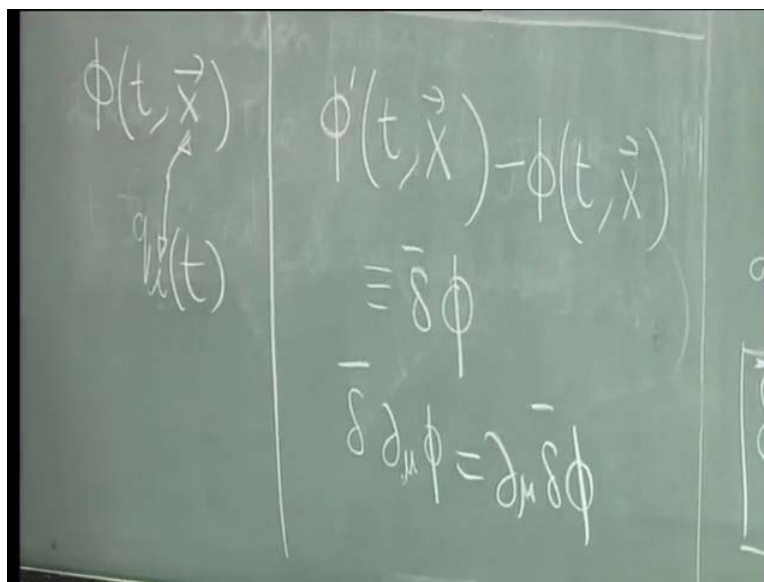 ϕ(t, x⃗)
q_x⃗(t)
ϕ'(t, x⃗) − ϕ(t, x⃗)
≡ δ̄ϕ
δ̄∂_μϕ = ∂_μδ̄ϕ